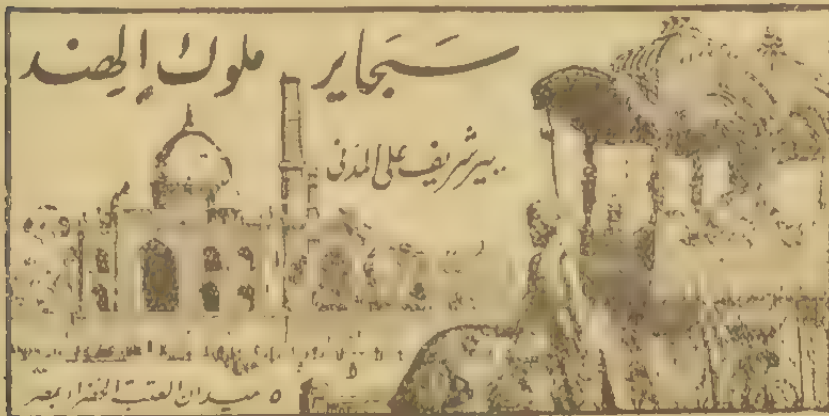 سجاير ملوك الهند
بير شريف على المدنى
٥ ميدان العتبة الخضراء بمصر